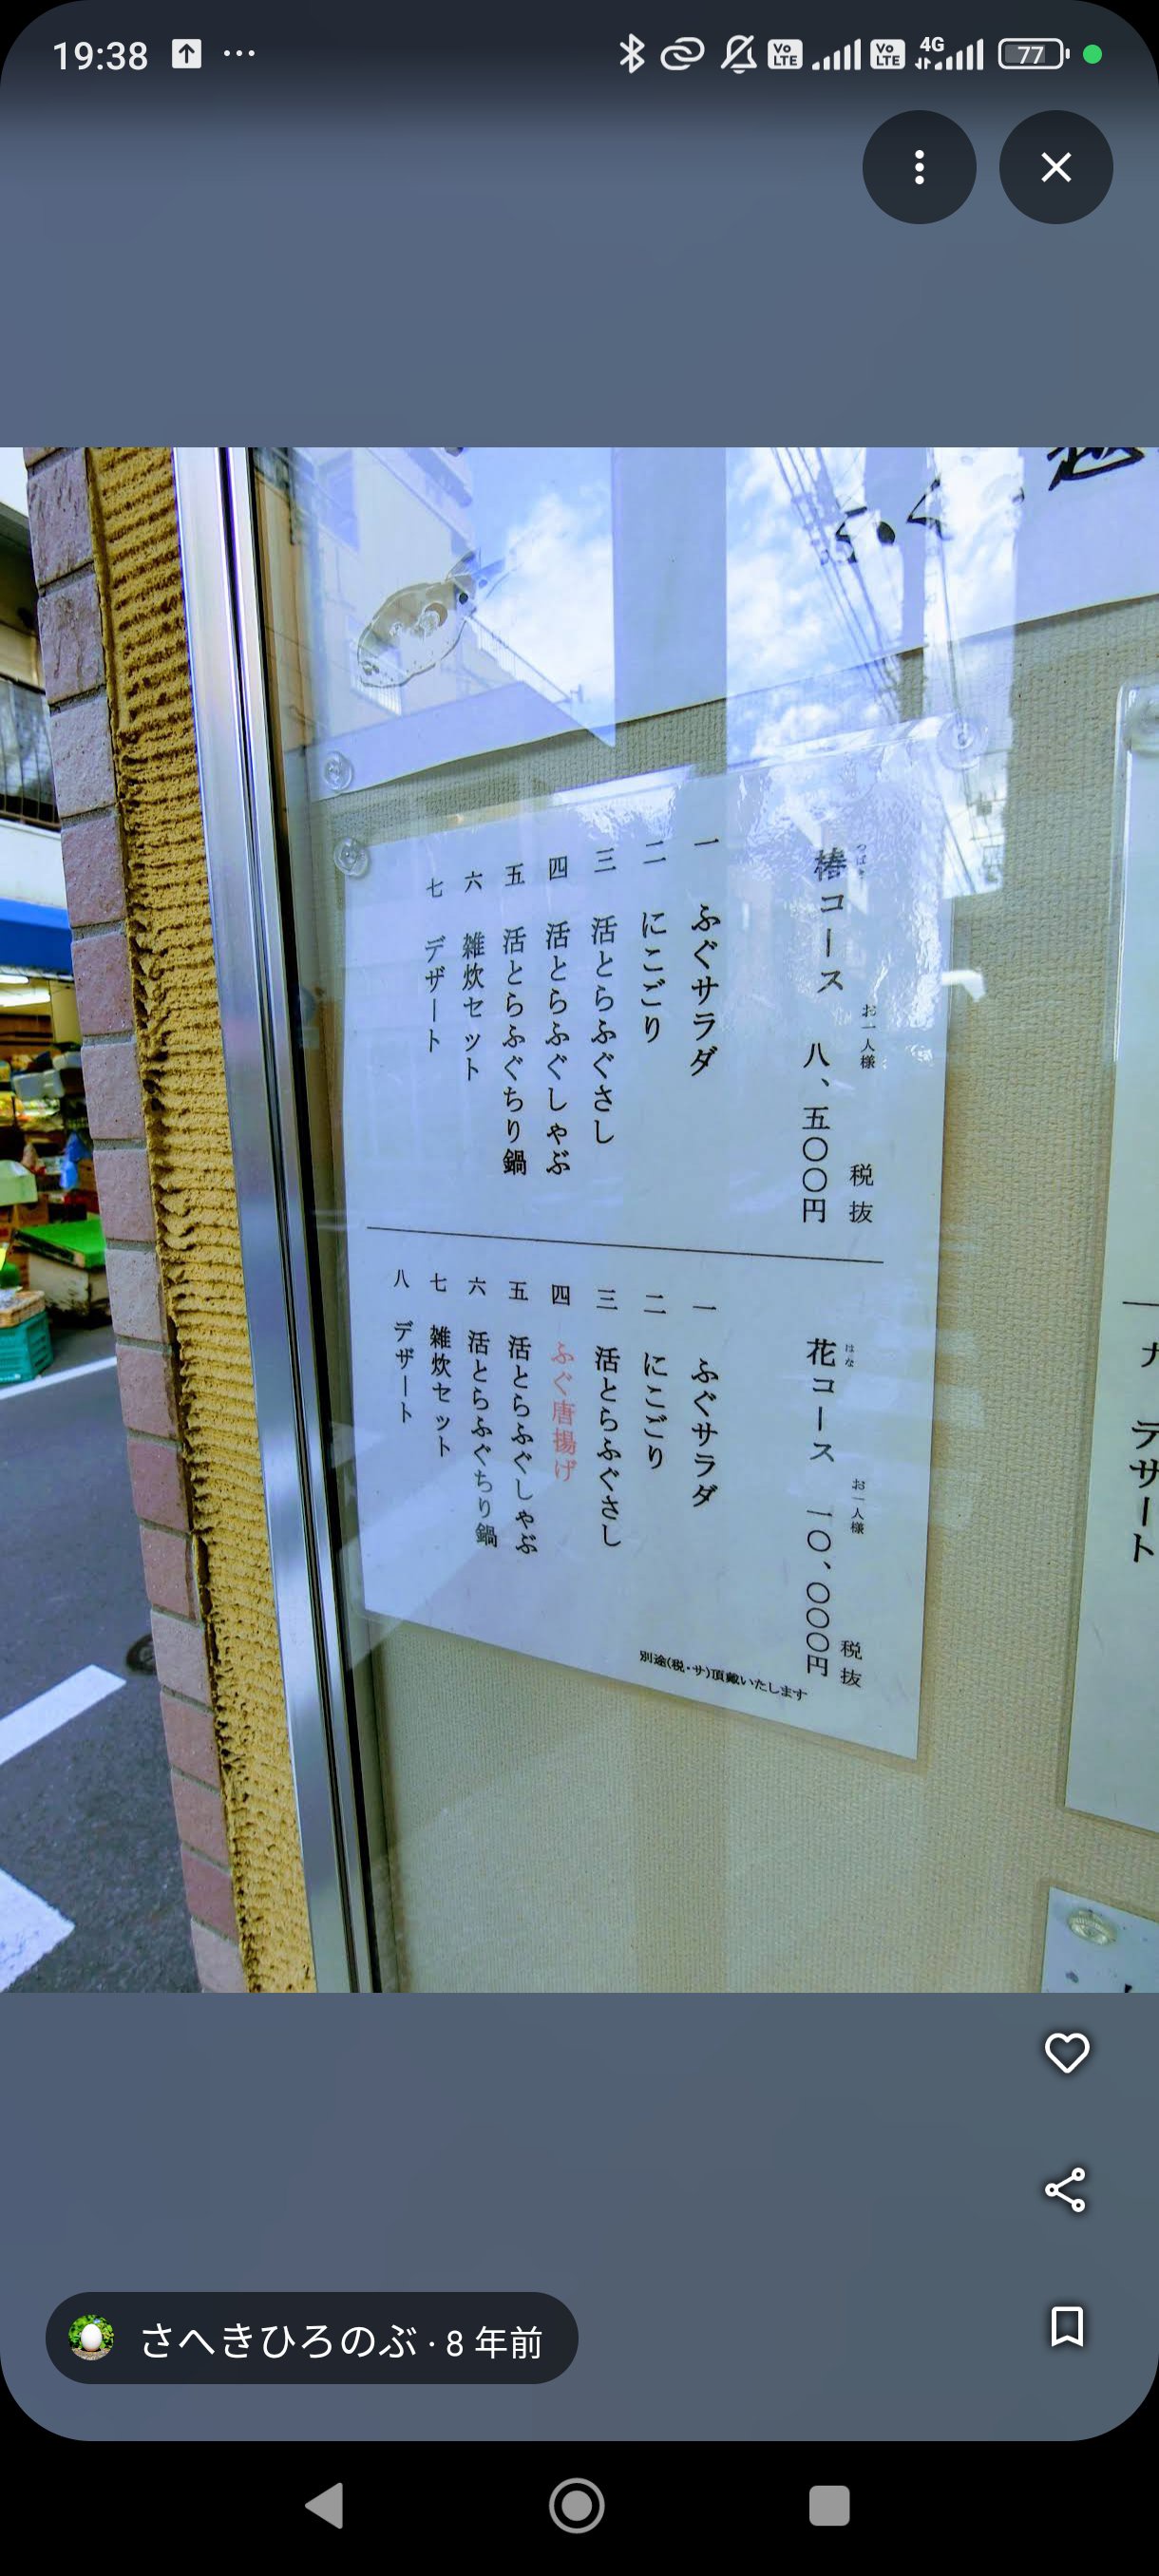 19:38
Vo LTE
Vo LTE
4G
77
つばき
椿コース
お一人様
八、五〇〇円
税抜
一 ふぐサラダ
二 にこごり
三 活とらふぐさし
四 活とらふぐしゃぶ
五 活とらふぐちり鍋
六 雑炊セット
七 デザート
はな
花コース
お一人様
一〇、〇〇〇円
税抜
一 ふぐサラダ
二 にこごり
三 活とらふぐさし
四 ふぐ唐揚げ
五 活とらふぐしゃぶ
六 活とらふぐちり鍋
七 雑炊セット
八 デザート
別途(税・サ)頂戴いたします
デザート
さへきひろのぶ · 8 年前